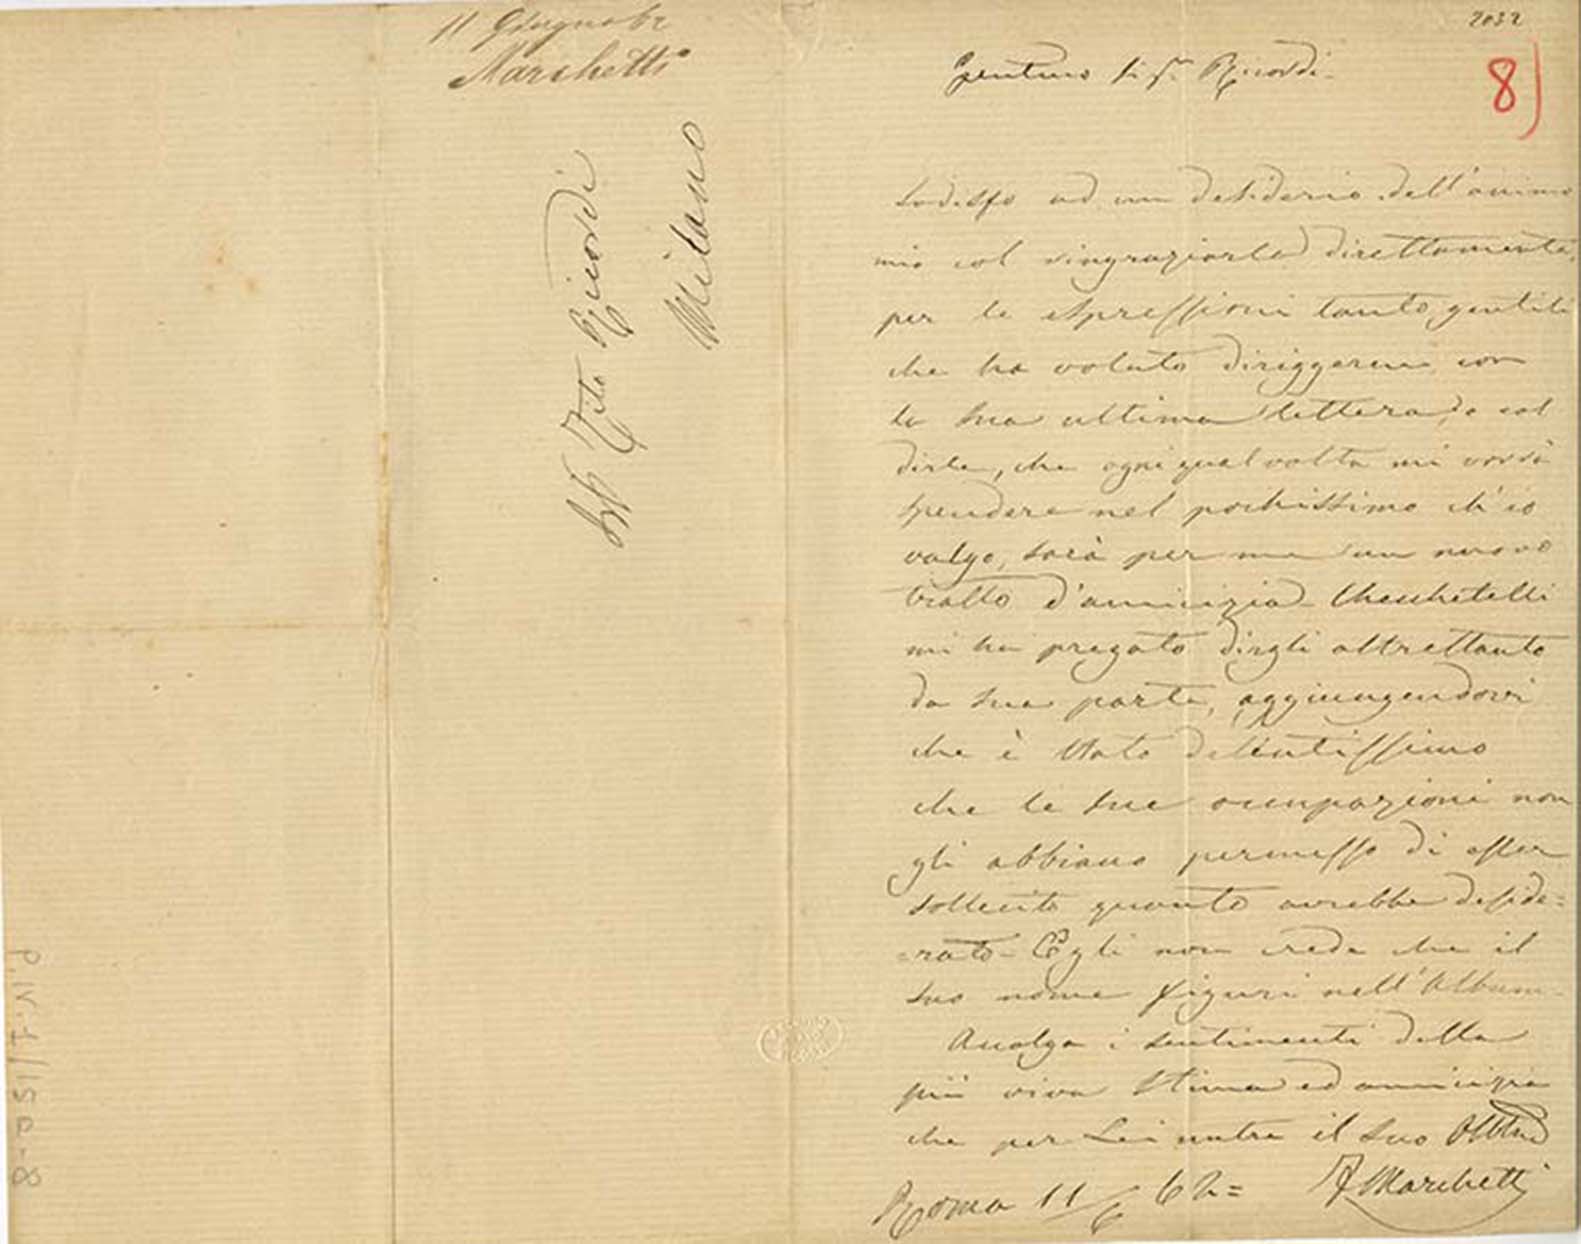 11 Giugno 62
Marchetti
Tito Ricordi
Milano
2032
8)
Gentmo Sigr Ricordi-
Sodisfo ad un desiderio dell'animo
mio col ringraziarla direttamente,
per le espressioni tanto gentili
che ha voluto diriggermi con
la sua ultima lettera, e col
dirle, che ogni qual volta mi vorrà
spendere nel pochissimo ch'io
valgo, sarà per me un nuovo
tratto d'amicizia- Checchetelli
mi ha pregato dirgli altrettanto
da sua parte, aggiungendovi
che è stato dolentissimo
che le sue occupazioni non
gli abbiano permesso di esser
sollecito quanto avrebbe deside=
=rato- Egli non crede che il
suo nome figuri nell'Album-
Accolga i sentimenti della
più viva stima ed amicizia
che per Lei nutre il suo Obblmo
Roma 11/6 62=
F Marchetti
P.IV.1/150-8